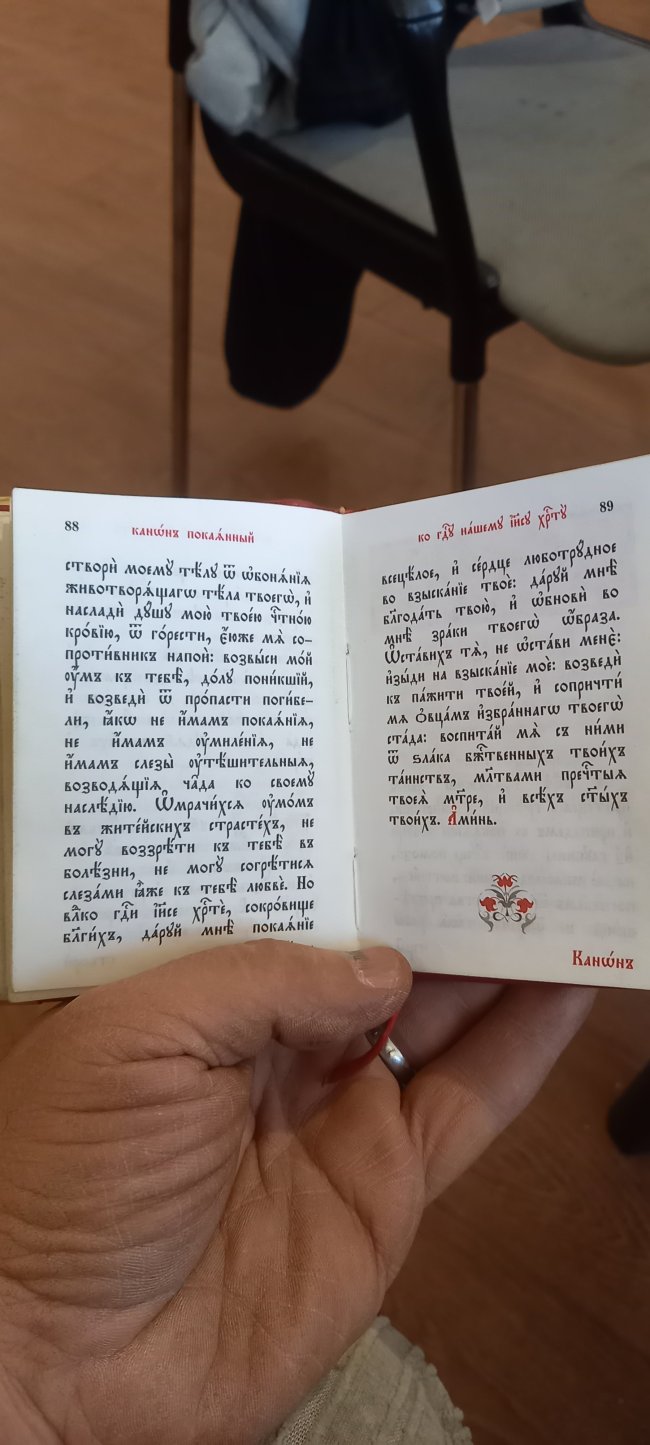 88
канѡ́нъ покаѧ́нный
створѝ моемꙋ̀ тѣ́лꙋ ѿ ѡбонѧ́нїѧ
животворѧ́щагѡ тѣ́ла твоегѡ̀, и҆
наслади̑ дꙋ́шꙋ мою̀ твое́ю чⷭ҇тно́ю
кро́вїю, ѿ го́рести, є҆́юже мѧ̀ со-
проти́вникъ напоѝ: возвы́си мо́й
ᲂу҆́мъ къ тебѣ̀, до́лꙋ пони́кшїй,
и҆ возведѝ ѿ про́пасти поги́бе-
ли, ꙗ҆́кѡ не и҆́мамъ покаѧ́нїѧ,
не и҆́мамъ ᲂу҆миле́нїѧ, не
и҆́мамъ слезы̀ ᲂу҆тѣ́шительныѧ,
возводѧ́щїѧ ча̑да ко своемꙋ̀
наслѣ́дїю. Ѡ҆мрачи́хсѧ ᲂу҆мо́мъ
въ жите́йскихъ страсте́хъ, не
могꙋ̀ воззрѣ́ти къ тебѣ̀ въ
болѣ́зни, не могꙋ̀ согрѣ́тисѧ
слеза́ми ꙗ҆́же къ тебѣ̀ любвѐ. Но
влⷣко гдⷭ҇и і҆и҃се хрⷭ҇тѐ, сокро́вище
бл҃ги́хъ, да́рꙋй мнѣ̀ покаѧ́нїе
89
ко гдⷭ҇ꙋ на́шемꙋ і҆и҃сꙋ хрⷭ҇тꙋ̀
всецѣ́лое, и҆ се́рдце люботрꙋ́дное
во взыска́нїе твоѐ: да́рꙋй мнѣ̀
благода́ть твою̀, и҆ ѡ҆бновѝ во
мнѣ̀ зра́ки твоегѡ̀ ѡ҆́браза.
Ѡ҆ста́вихъ тѧ̀, не ѡ҆ста́ви менѐ:
и҆зы́ди на взыска́нїе моѐ: возведѝ
къ па́жити твое́й, и҆ сопричтѝ
мѧ ѻ҆вца́мъ и҆збра́ннагѡ твоегѡ̀
ста́да: воспита́й мѧ̀ съ ни́ми
ѿ ѕла́ка бжⷭ҇твенныхъ твои́хъ
та́инствъ, мл҃твами пречⷭ҇тыѧ
твоеѧ̀ мт҃ре, и҆ всѣ́хъ ст҃ы́хъ
твои́хъ. А҆ми́нь.
Канѡ́нъ